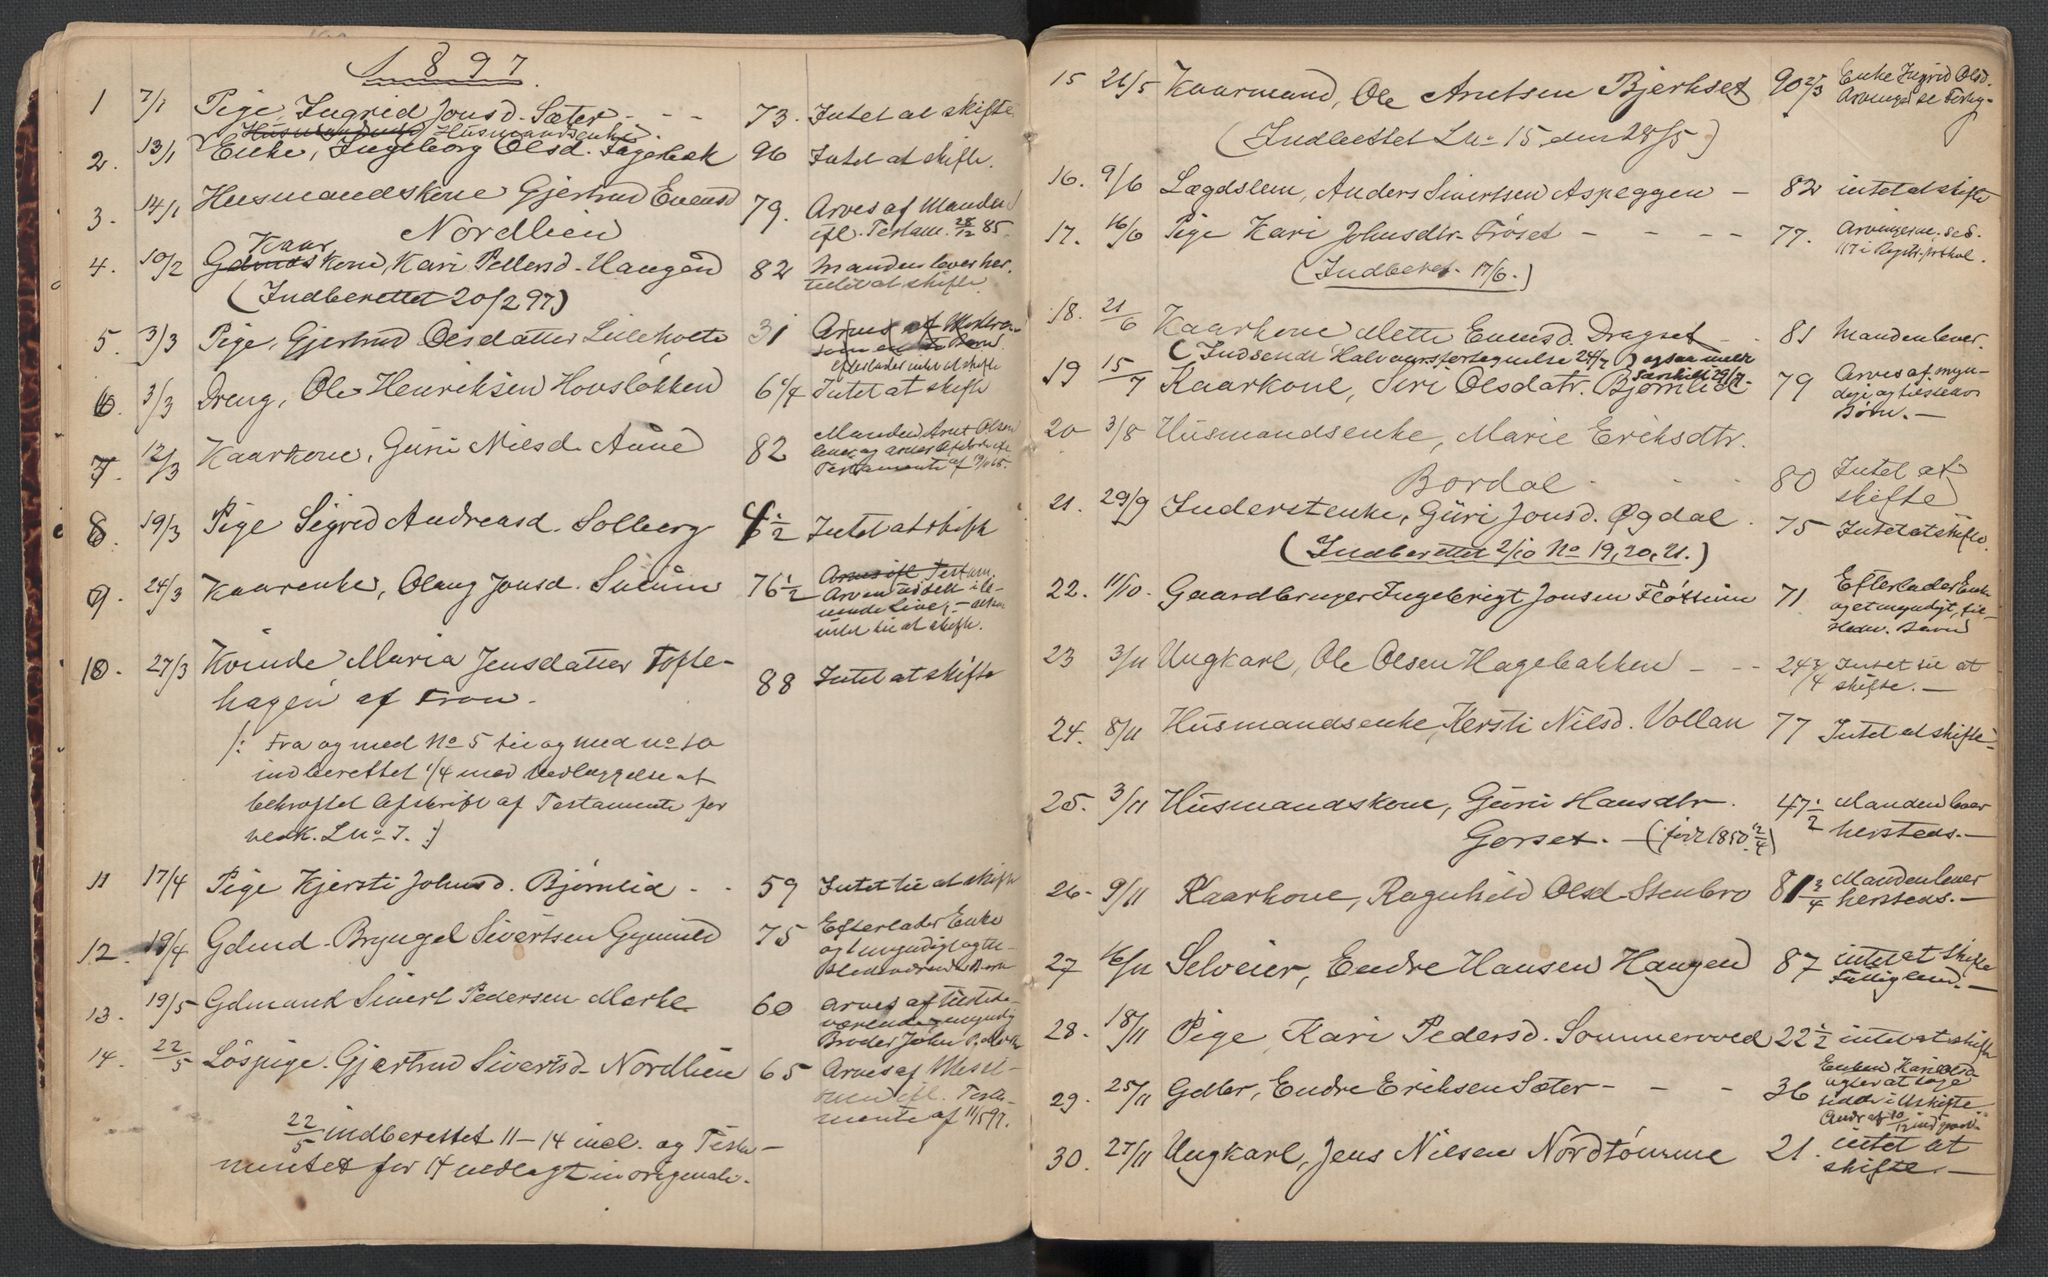 1897.
1 7/1 Pige, Ingrid Jonsd. Sæter - - - 73. Intet at skifte
Husmandsenke.
2. 13/1 Enke, Ingeborg Olsd. Fagebæk 96 Intet at skifte.
3. 14/1 Husmandskone Gjertrud Evensd 79. Arves af Manden
Nordlien ifl. Testam. 28/12 85.
Kaar
4. 10/2 Gdmdskone, Kari Pettersd. Haugen 82 Manden lever her.
(Indberettet 20/2 97) intet at skifte.
5. 3/3 Pige, Gjertrud Olsdatter Lilleholte 31 Arves af
efterlader intet at skifte
6. 3/3 Dreng, Ole Henriksen Hovsløkken 6 1/4 Intet at skifte
7. 12/3 Kaarkone, Guri Nilsd. Aune 82 Manden Arnt Olsen
lever og arver
Testamente af
8. 19/3 Pige Sigrid Andreasd. Solberg 1/2 Intet at skifte
9. 24/3 Kaarenke, Olaug Jonsd. 76 1/2 Arves ifl. Testam.
Arven udsett i le-
vende Live, -
intet til at skifte.
10. 27/3 Kvinde Maria Jensdatter Tofte- 88 Intet at skifte
hagen af Fron.
/: Fra og med No 5 til og med no 10
indberettet 1/4 med vedlæggelse af
bekræftet Afskrift af Testamente for
vedk. L No 7. :/
11 17/4 Pige Kjersti Johnsd. Bjørnlid - - 59 Intet til at skifte
12. 19/4 Gdmd. Bryngel Sivertsen Gynnild 75 Efterlader Enke
og 1 myndigt og til-
stedeværende Barn
13. 19/5 Gdmand Sivert Pedersen Mærke 60 Arves af tilstede-
værende, myndig
Broder John P. Mærke
14. 22/5 Løspige. Gjertrud Sivertsd Nordlien 65 Arves af
ifl. Testa-
mente af 11/5 97.
22/5 indberettet 11-14 incl. og Testa-
mentet for 14 vedlagt in originale.
15 26/5 Kaarmand, Ole Arntsen Bjerkset 90 2/3 Enke Ingrid Olsd.
Arvinger se
(Indberettet L No 15 den 28/5)
16. 9/6 Lægdslem, Anders Sivertsen Aspeggen - 82 intet at skifte
17. 16/6 Pige Kari Johnsdtr. Frøset - - - - 77. Arvingerne. se S.
117 i Registr. protkol.
(Indberet. 17/6.)
18. 21/6 Kaarkone Mette Evensd. Dragset - 81 Manden lever.
(Indsendt Halvaarsfortegnelse 24/7) ogsaa meldt
særskilt 29/7.
19 15/7 Kaarkone, Siri Olsdatr. Bjørnlid 79 Arves af myn-
dige og tilstedev.
Børn. -
20 3/8 Husmandsenke, Marie Eriksdtr.
Bordal - - - 80 Intet at
skifte
21. 29/9 Inderstenke, Guri Jonsd. Øgdal. 75 Intet at skifte.
(Indberettet 2/10 No 19, 20, 21.)
22. 11/10. Gaardbruger Ingebrigt Jonsen Fløttum 71 Efterlader Enke
og et myndigt, til-
stedev. Barn
23 3/11 Ungkarl, Ole Olsen Hagebakken - - - 24 3/4 Intet til at
skifte. -
24. 8/11 Husmandsenke, Kersti Nilsd. Vollan 77 Intet at skifte -
25. 3/11 Husmandskone, Guri Hansdtr. 47 1/2 Manden lever
Gorset. - (født 1850 12/4) hersteds. -
26. 9/11 Kaarkone, Ragnhild Olsd. Stenbro 81 3/4 Manden lever
hersteds. -
27 16/11 Selveier, Endre Hansen Haugen 87 intet at skifte
Fattiglem. -
28. 18/11 Pige, Kari Pedersd. Sommervold 22 1/2 intet at skifte
29. 25/11 Gdbr, Endre Eriksen Sæter - - - 36 Enken Kari Olsd
agter at
sidde i Uskifte
30. 27/11 Ungkarl, Jens Nilsen Nordtømme 21. intet at
skifte. -